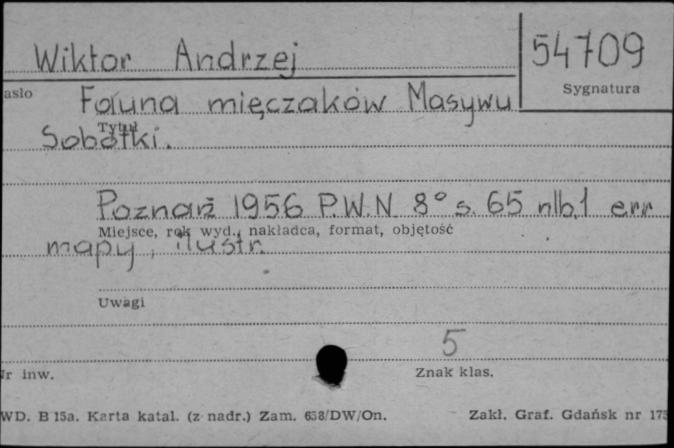 Wiktor Andrzej
54709
asło
Sygnatura
Fauna mięczaków Masywu
Tytuł
Sobótki.
Poznań 1956 P.W.N. 8° s. 65 nlb,1 err
Miejsce, rok wyd., nakładca, format, objętość
mapy, ilustr.
Uwagi
5
Nr inw.
Znak klas.
WD. B 15a. Karta katal. (z nadr.) Zam. 658/DW/On.
Zakł. Graf. Gdańsk nr 173